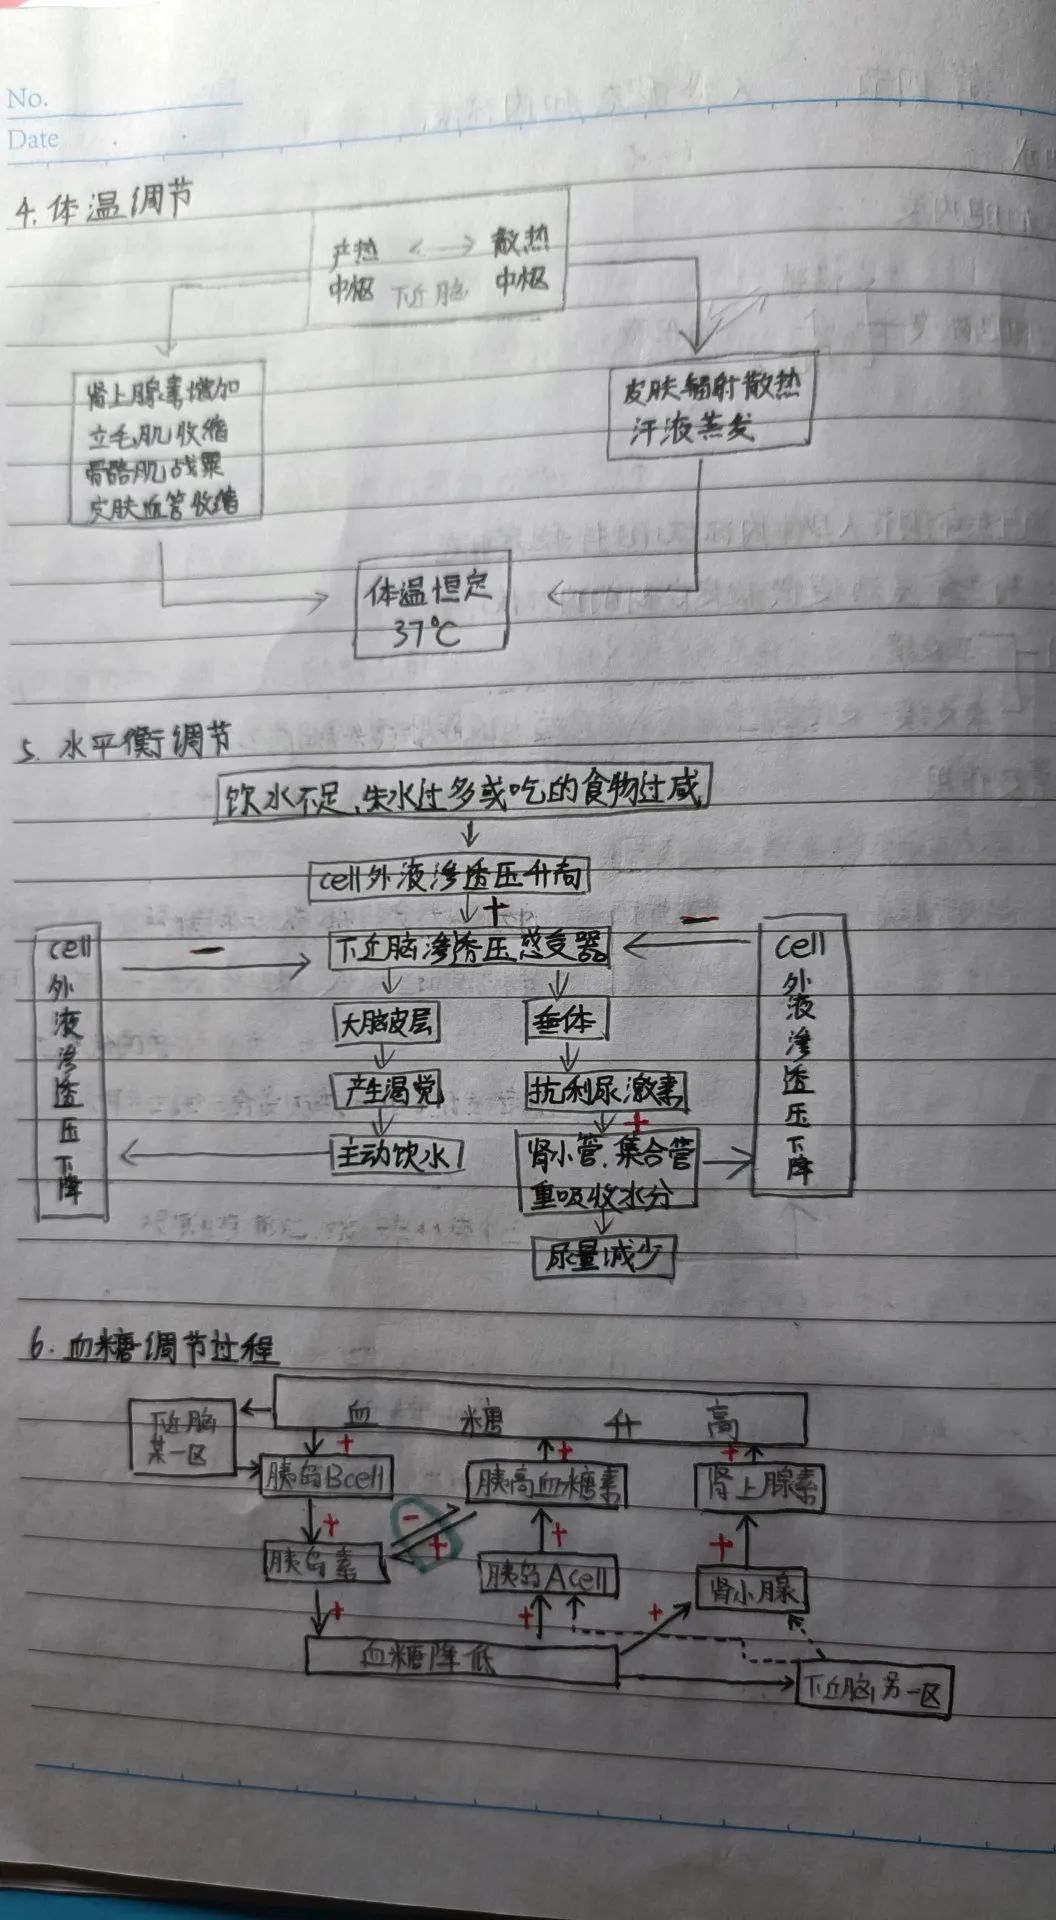 No.
Date
4.体温调节
产热 <-> 散热
中枢 下丘脑 中枢
肾上腺素增加
立毛肌收缩
骨骼肌战栗
皮肤血管收缩
皮肤辐射散热
汗液蒸发
体温恒定
37℃
5.水平衡调节
饮水不足、失水过多或吃的食物过咸
cell外液渗透压升高
+
-
-
下丘脑渗透压感受器
cell外液渗透压下降
大脑皮层
垂体
cell外液渗透压下降
产生渴觉
抗利尿激素
+
主动饮水
肾小管、集合管
重吸收水分
尿量减少
6.血糖调节过程
血糖升高
下丘脑
某一区
+
+
+
胰岛Bcell
胰高血糖素
肾上腺素
+
-
+
+
+
胰岛素
胰岛Acell
肾小腺
+
+
+
血糖降低
下丘脑另一区